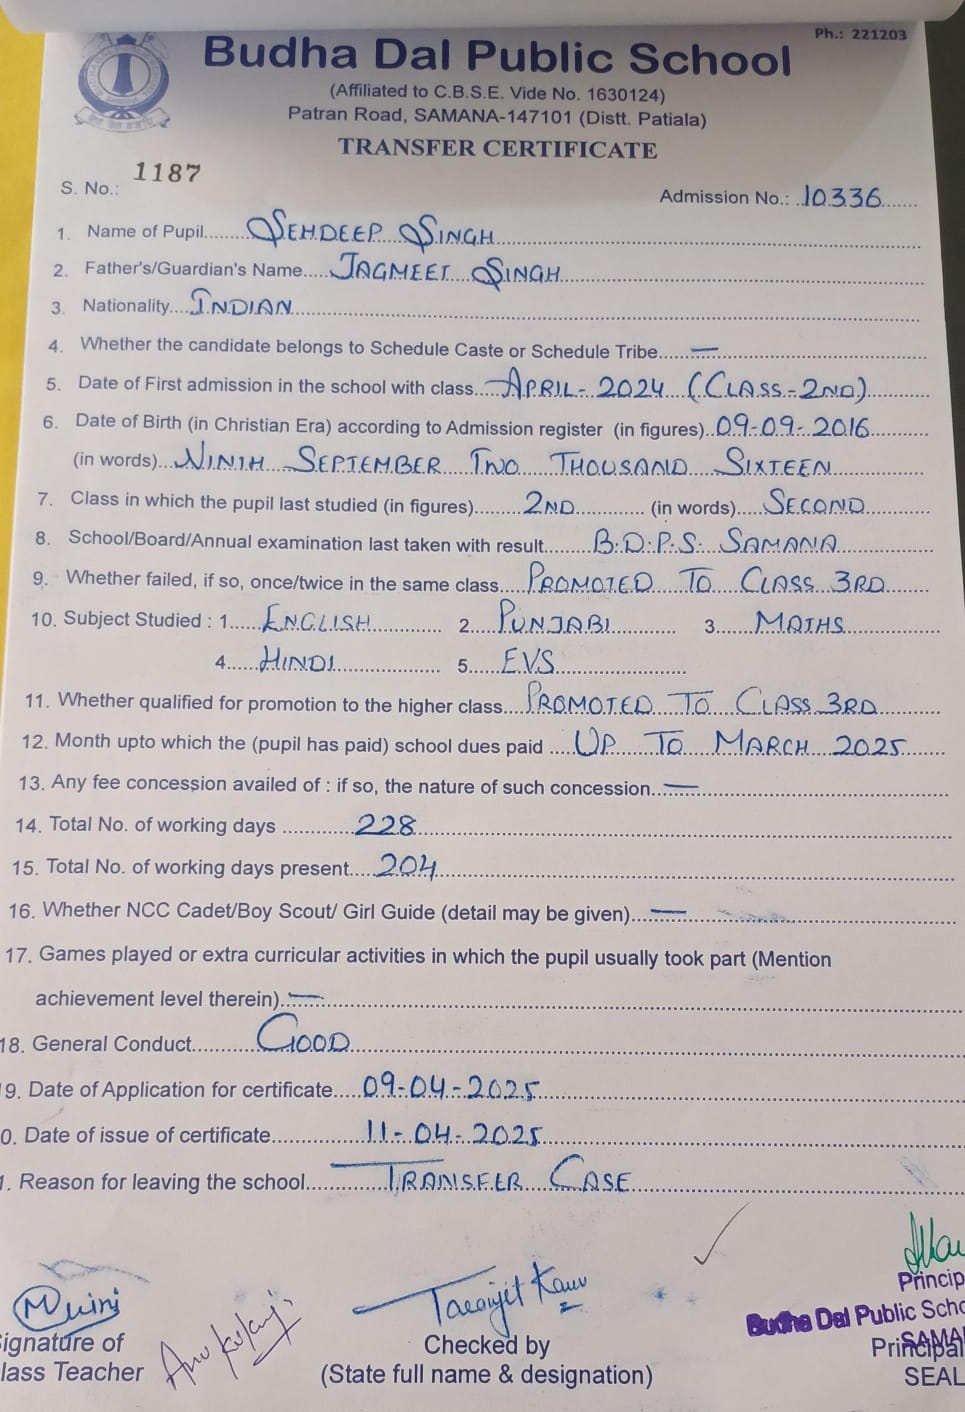 Ph.: 221203
Budha Dal Public School
(Affiliated to C.B.S.E. Vide No. 1630124)
Patran Road, SAMANA-147101 (Distt. Patiala)
TRANSFER CERTIFICATE
S. No.: 1187
Admission No.: 10336
1. Name of Pupil SEHDEEP SINGH
2. Father's/Guardian's Name JAGMEET SINGH
3. Nationality INDIAN
4. Whether the candidate belongs to Schedule Caste or Schedule Tribe —
5. Date of First admission in the school with class APRIL-2024 (CLASS-2ND)
6. Date of Birth (in Christian Era) according to Admission register (in figures) 09-09-2016
(in words) NINTH SEPTEMBER TWO THOUSAND SIXTEEN
7. Class in which the pupil last studied (in figures) 2ND (in words) SECOND
8. School/Board/Annual examination last taken with result B.D.P.S. SAMANA
9. Whether failed, if so, once/twice in the same class PROMOTED TO CLASS 3RD
10. Subject Studied : 1. ENGLISH 2. PUNJABI 3. MATHS
4. HINDI 5. EVS
11. Whether qualified for promotion to the higher class PROMOTED TO CLASS 3RD
12. Month upto which the (pupil has paid) school dues paid UP TO MARCH 2025
13. Any fee concession availed of : if so, the nature of such concession —
14. Total No. of working days 228
15. Total No. of working days present 204
16. Whether NCC Cadet/Boy Scout/ Girl Guide (detail may be given) —
17. Games played or extra curricular activities in which the pupil usually took part (Mention
achievement level therein) —
18. General Conduct GOOD
9. Date of Application for certificate 09-04-2025
0. Date of issue of certificate 11-04-2025
1. Reason for leaving the school TRANSFER CASE
Princip
Budha Dal Public Scho
SAMA
ignature of
lass Teacher
Checked by
(State full name & designation)
Principal
SEAL